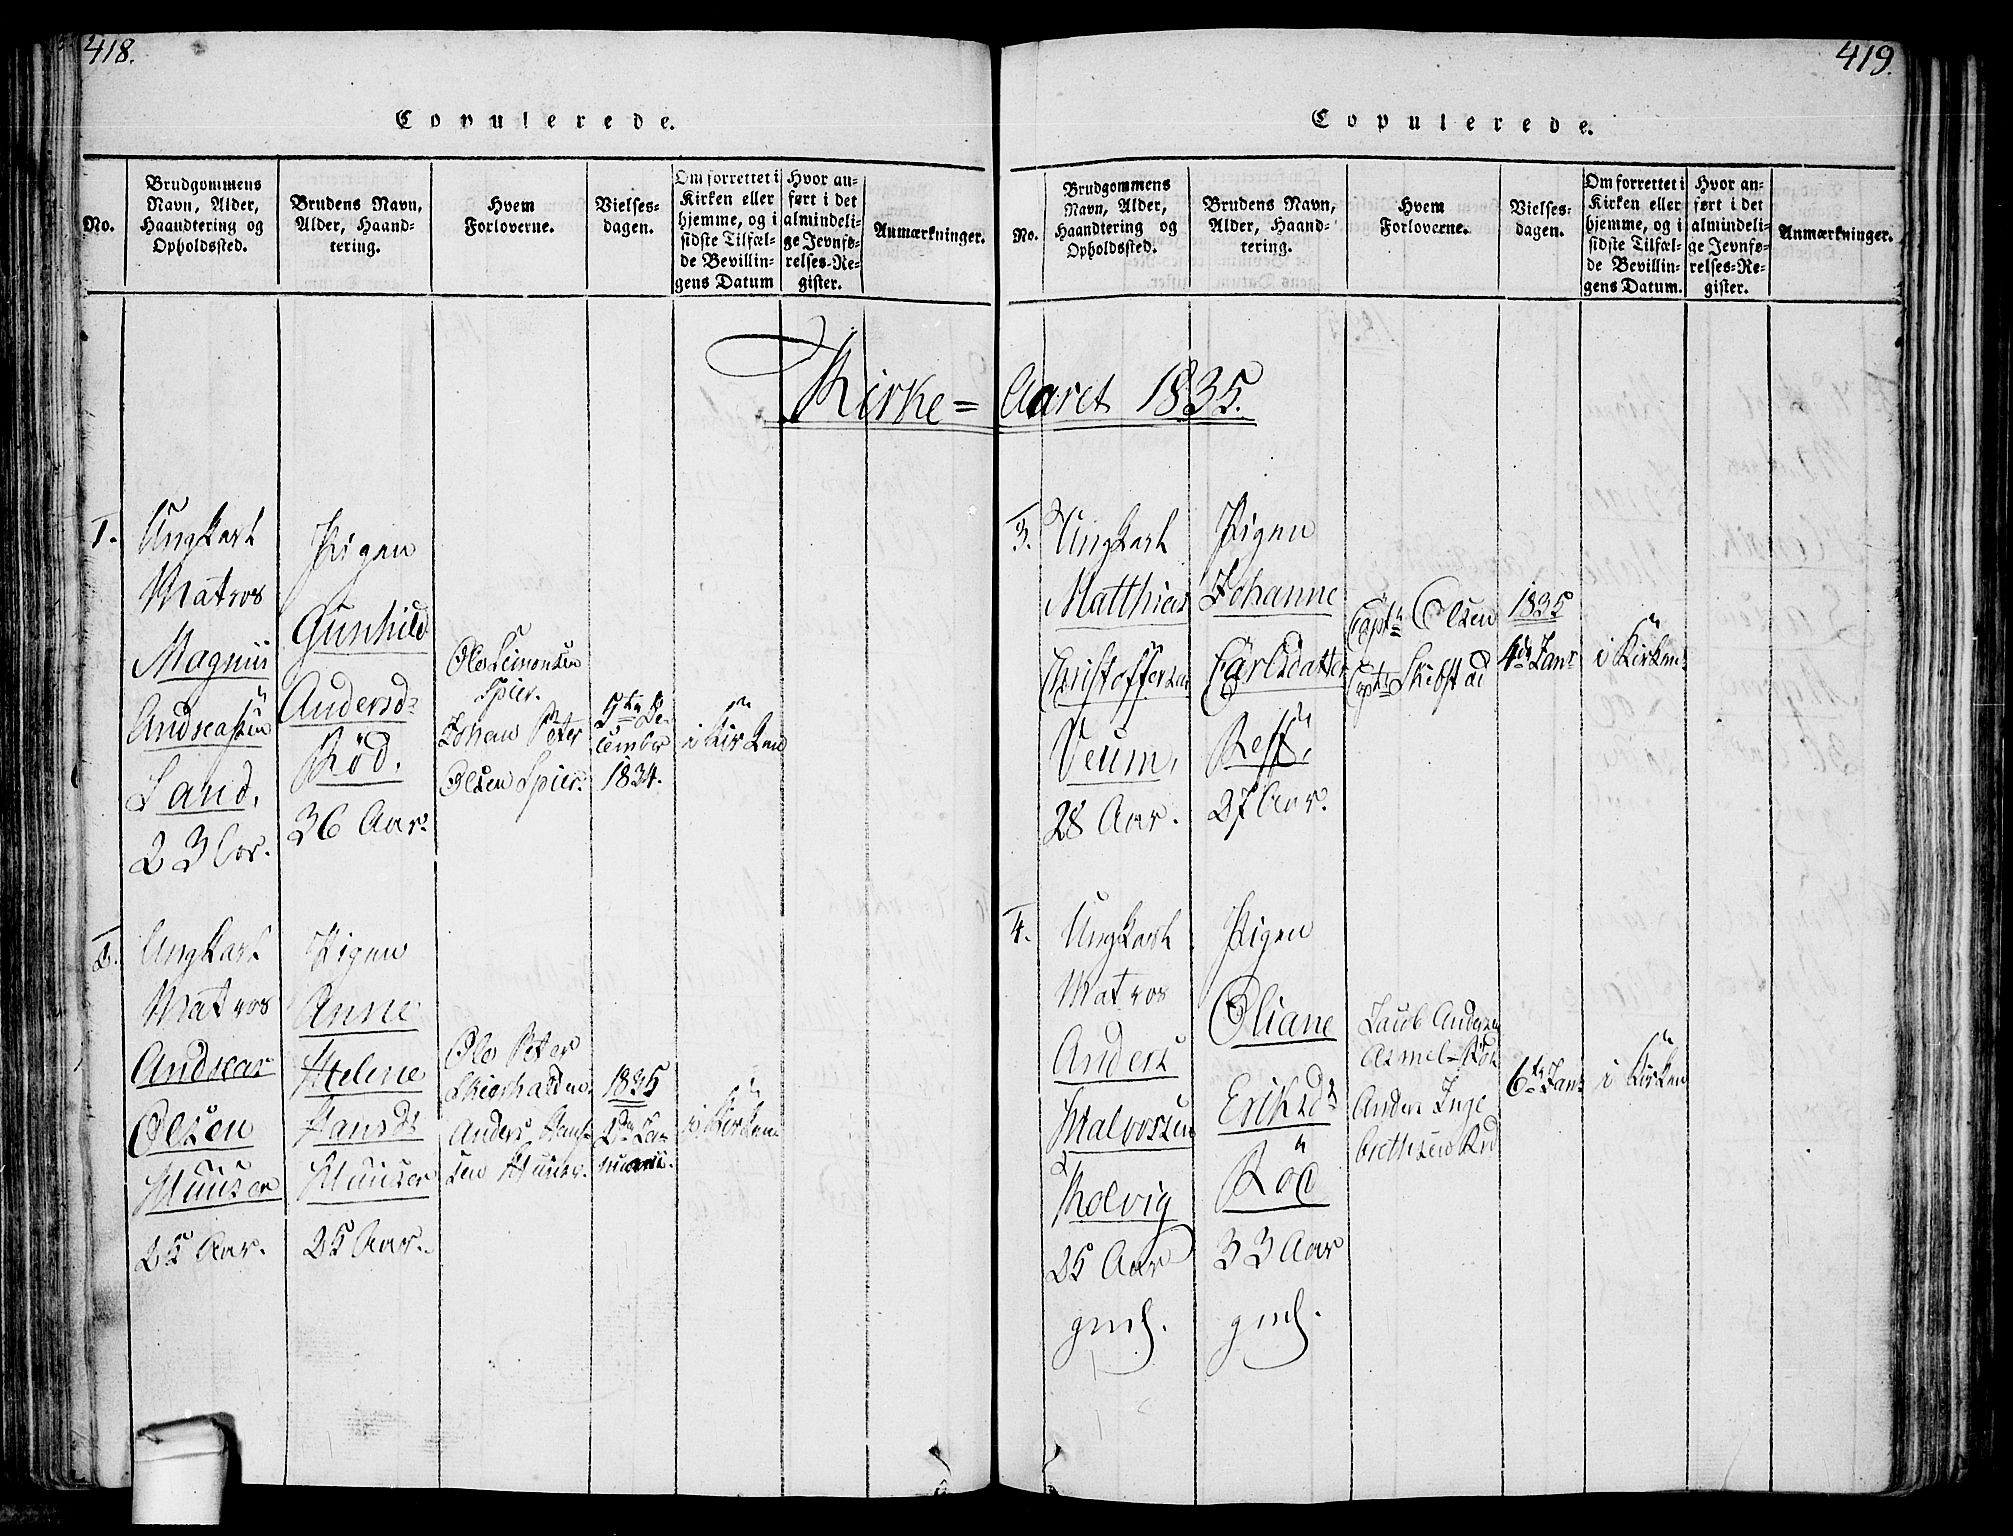 418.
Copulerede.
No.
Brudgommens
Navn, Alder,
Haandtering og
Opholdssted.
Brudens Navn,
Alder, Haand-
tering.
Hvem
Forloverne.
Vielses-
dagen.
Om forrettet i
Kirken eller
hjemme, og i
sidste Tilfæl-
de Bevillin-
gens Datum
Hvor an-
ført i det
almindeli-
ge Jevnfø-
relses-Re-
gister.
Anmærkninger.
Kirke=Aaret 1835.
1.
Ungkarl
Matros
Magnus
Andreasen
Sand.
23 Aar.
Pigen
Gunhild
Andersd
Röd.
36 Aar.
Ole Simonsen
Spier.
Johan Peter
Olsen Spier.
5te De-
cember
1834.
i Kirken
2.
Ungkarl
Matros
Andreas
Olsen
Huuser
25 Aar.
Pigen
Anne
Helene
Hansdr
Huuser
25 Aar.
Ole Peter
Anders Han-
sen Huuser.
1835
2de Ja-
nuarii.
i Kirken
419.
Copulerede.
No.
Brudgommens
Navn, Alder,
Haandtering og
Opholdssted.
Brudens Navn,
Alder, Haand-
tering.
Hvem
Forloverne.
Vielses-
dagen.
Om forrettet i
Kirken eller
hjemme, og i
sidste Tilfæl-
de Bevillin-
gens Datum.
Hvor an-
ført i det
almindeli-
ge Jevnfø-
relses-Re-
gister.
Anmærkninger.
3.
Ungkarl
Matthias
Christoffersen
Veum,
28 Aar.
Pigen
Johanne
Carlsdatter
27 Aar.
Captn Olsen
Captn Skibstad
1835
4de Janr
i Kirken
4.
Ungkarl
Matros
Anders
Halvorsen
Kolvig
25 Aar
gml.
Pigen
Oliane
Eriksdr
Röd
33 Aar
gml.
Jacob Andersen
Asmel-Röd
Anders Inge
brethsen Röd
6te Janr
i Kirken